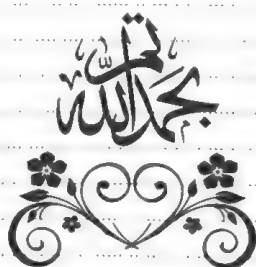 تم
بحمد الله